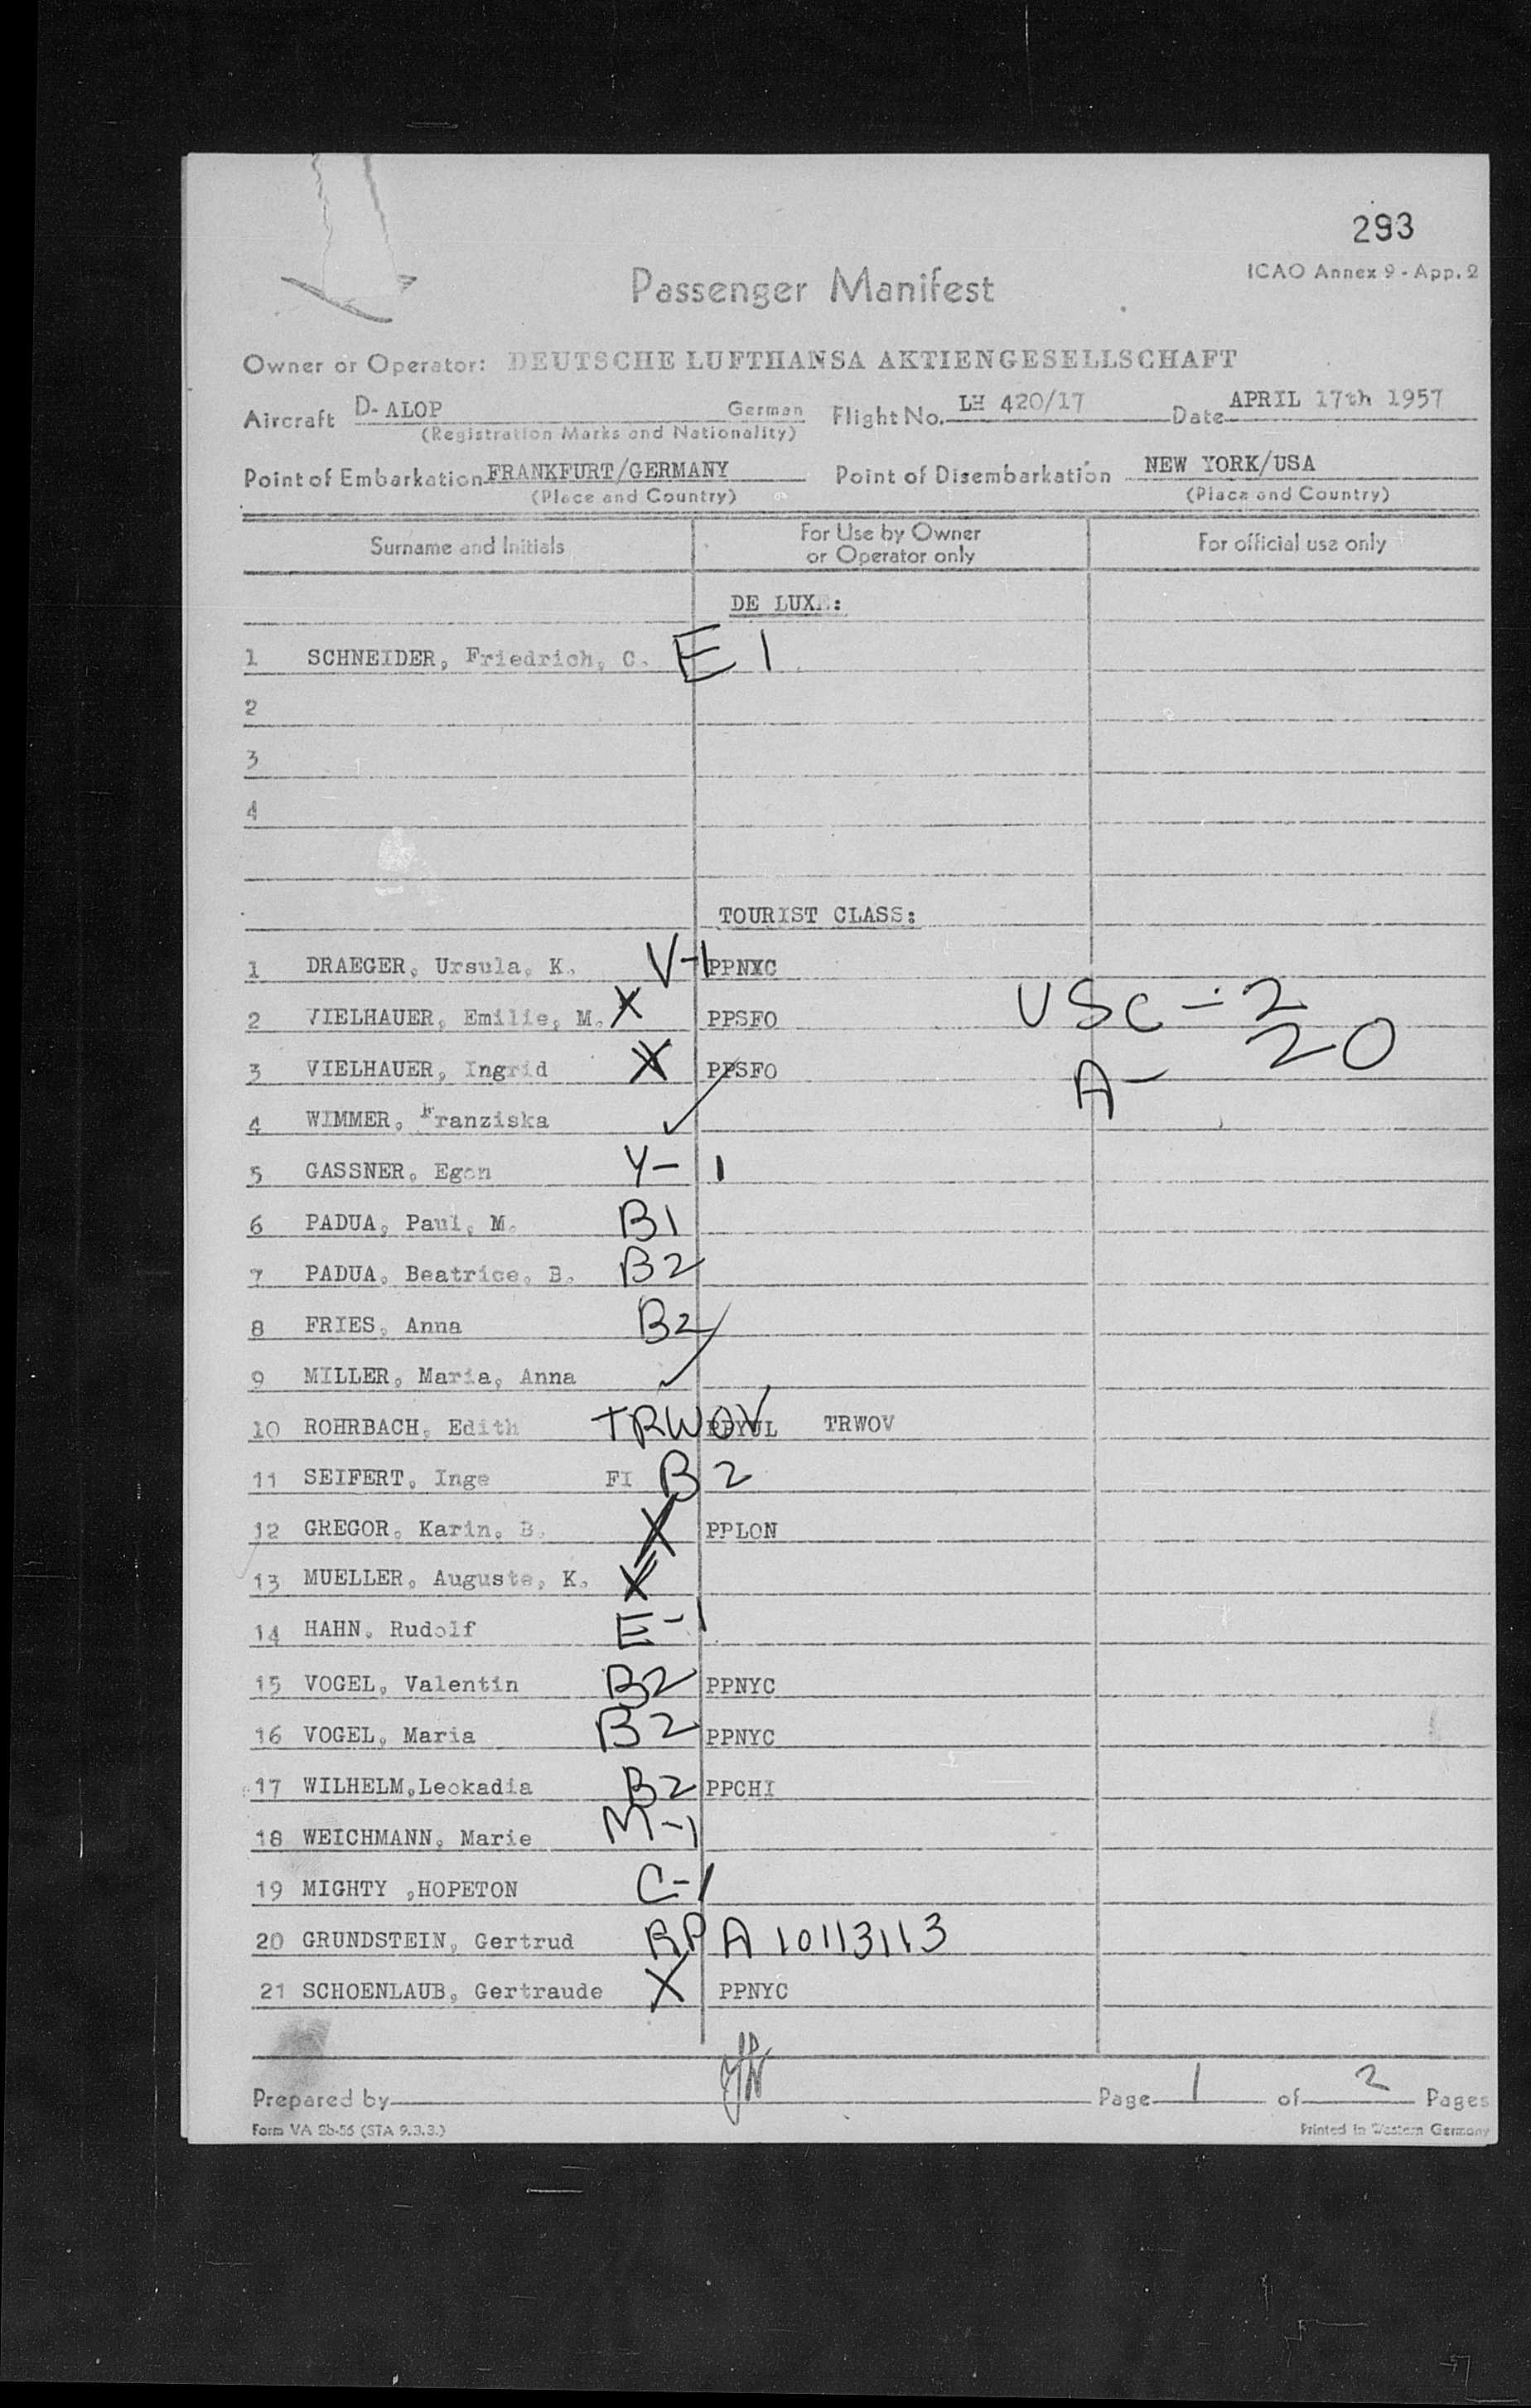 293
ICAO Annex 9 - App. 2
Passenger Manifest
Owner or Operator: DEUTSCHE LUFTHANSA AKTIENGESELLSCHAFT
Aircraft D-ALOP German Flight No. LH 420/17 Date APRIL 17th 1957
(Registration Marks and Nationality)
Point of Embarkation FRANKFURT/GERMANY Point of Disembarkation NEW YORK/USA
(Place and Country) (Place and Country)
Surname and Initials For Use by Owner or Operator only For official use only
DE LUXE:
1 SCHNEIDER, Friedrich, C. E 1
2
3
4
TOURIST CLASS:
1 DRAEGER, Ursula, K. V-1 PPNYC
2 VIELHAUER, Emilie, M. X PPSFO USC - 2
3 VIELHAUER, Ingrid X PPSFO A- 20
4 WIMMER, Franziska ✓
5 GASSNER, Egon Y- 1
6 PADUA, Paul, M. B1
7 PADUA, Beatrice, B. B2
8 FRIES, Anna B2
9 MILLER, Maria, Anna ✓
10 ROHRBACH, Edith TRWOV PPYUL TRWOV
11 SEIFERT, Inge FI B2
12 GREGOR, Karin, B. X PPLON
13 MUELLER, Auguste, K. X
14 HAHN, Rudolf E-1
15 VOGEL, Valentin B2 PPNYC
16 VOGEL, Maria B2 PPNYC
17 WILHELM,Leokadia B2 PPCHI
18 WEICHMANN, Marie M-1
19 MIGHTY ,HOPETON C-1
20 GRUNDSTEIN, Gertrud RP A 10113113
21 SCHOENLAUB, Gertraude X PPNYC
Prepared by Page 1 of 2 Pages
Form VA 2b-56 (STA 9.3.3.) Printed in Western Germany